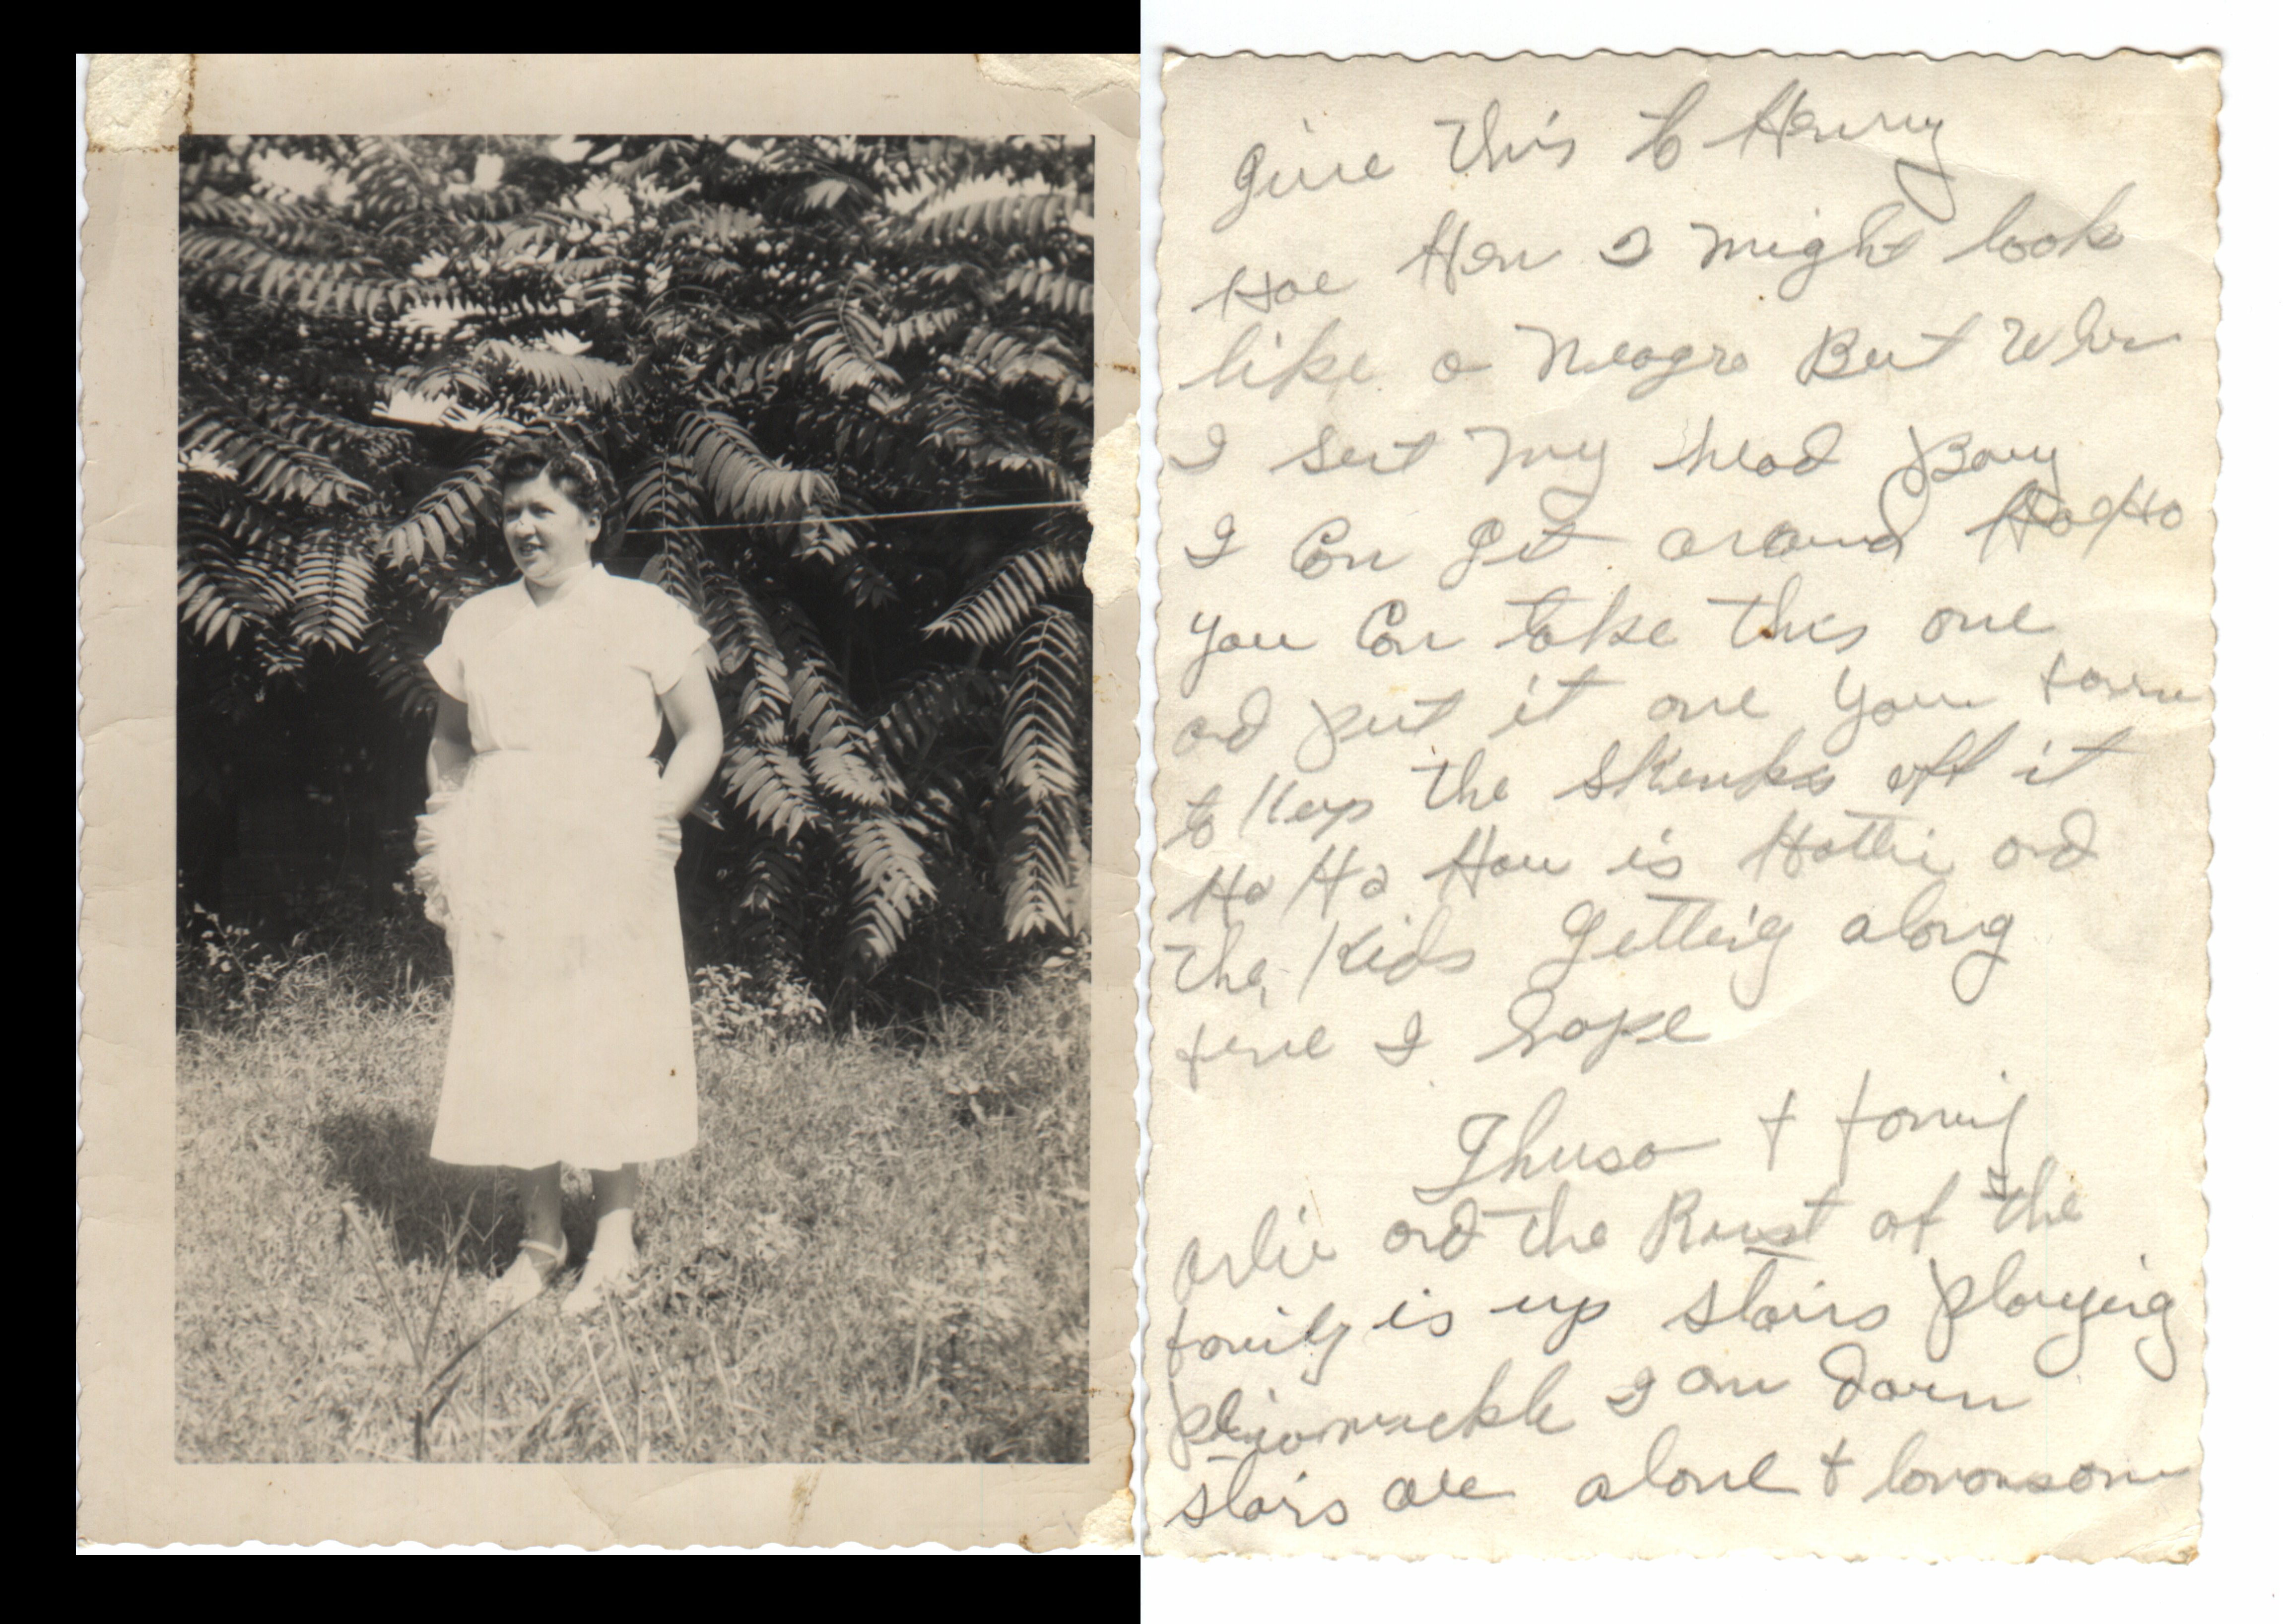 give this to Henry
Hae Hen I might look
like a Neagro But When
I set my head Bouy
I Can get around Ha Ha
you Can take this one
and put it one your
to Keep the Skunks off it
Ha Ha How is Hattie and
the Kids getting along
fine I hope
+ family
Orlie and the Rest of the
family is up stairs playing
I am down
stairs ale alone +